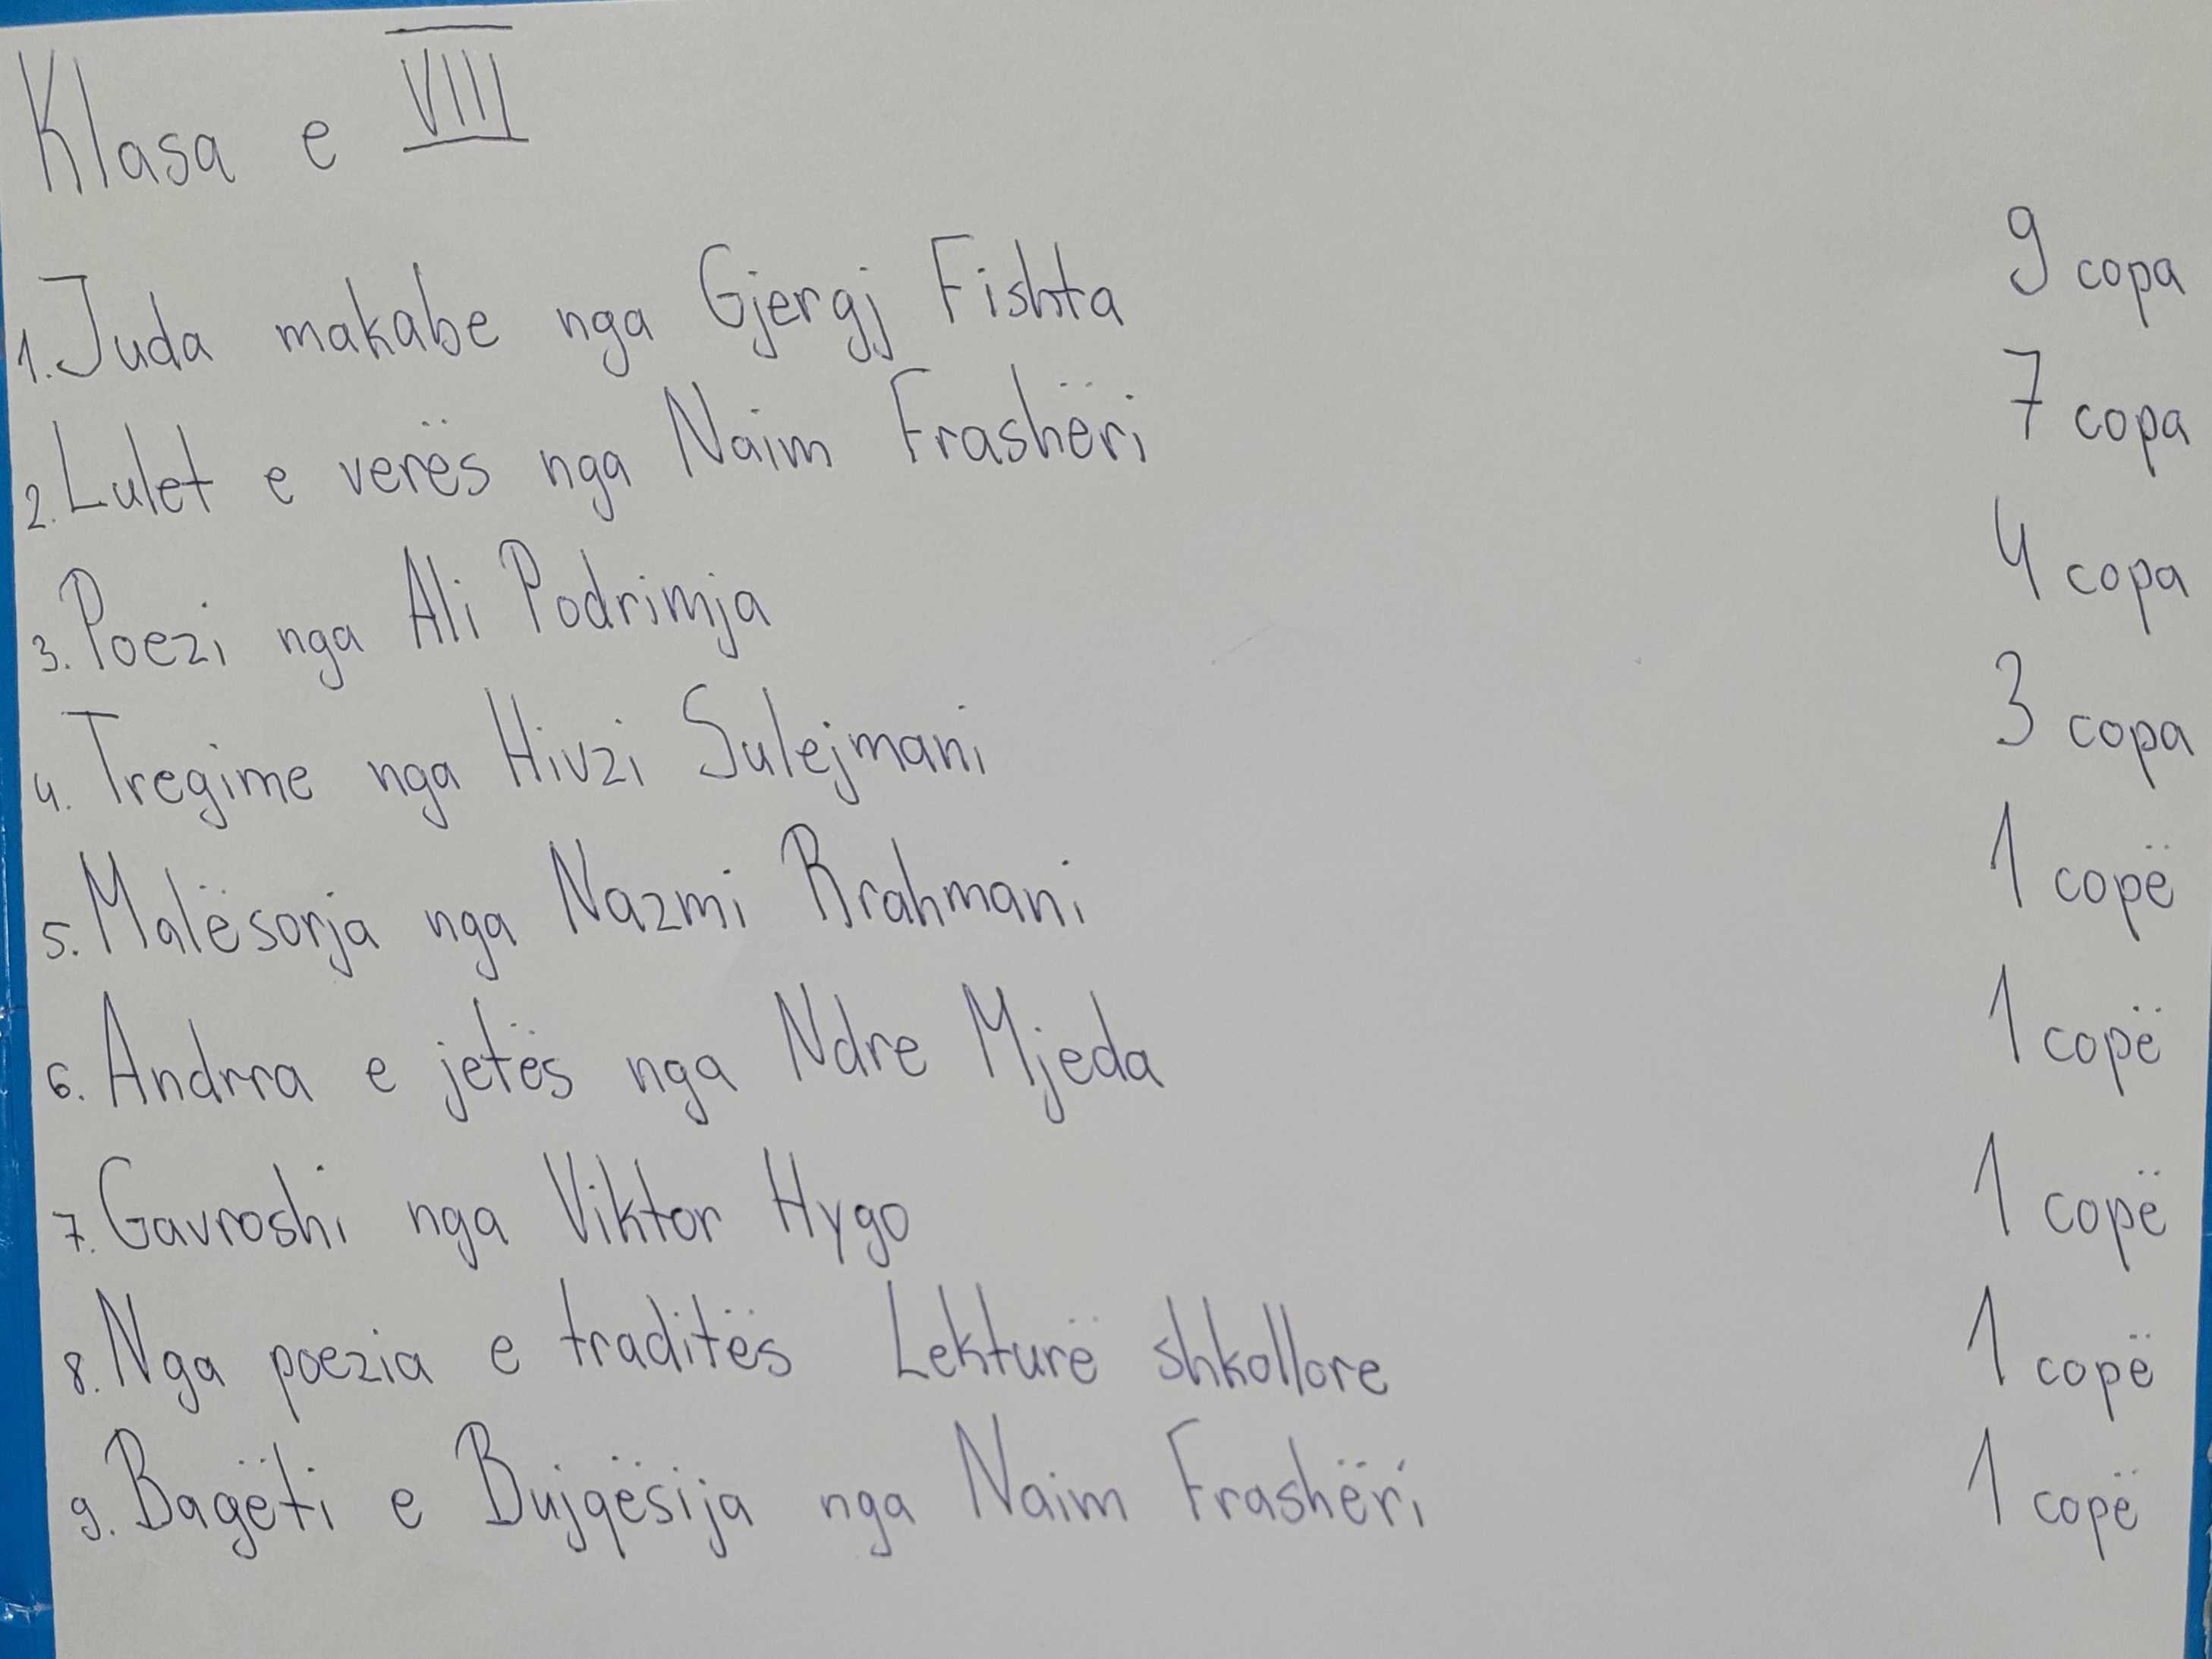 Klasa e VIII
1. Juda makabe nga Gjergj Fishta 9 copa
2. Lulet e verës nga Naim Frashëri 7 copa
3. Poezi nga Ali Podrimja 4 copa
4. Tregime nga Hivzi Sulejmani 3 copa
5. Malësorja nga Nazmi Rrahmani 1 copë
6. Andrra e jetës nga Ndre Mjeda 1 copë
7. Gavroshi nga Viktor Hygo 1 copë
8. Nga poezia e traditës Lekturë shkollore 1 copë
9. Bagëti e Bujqësija nga Naim Frashëri 1 copë